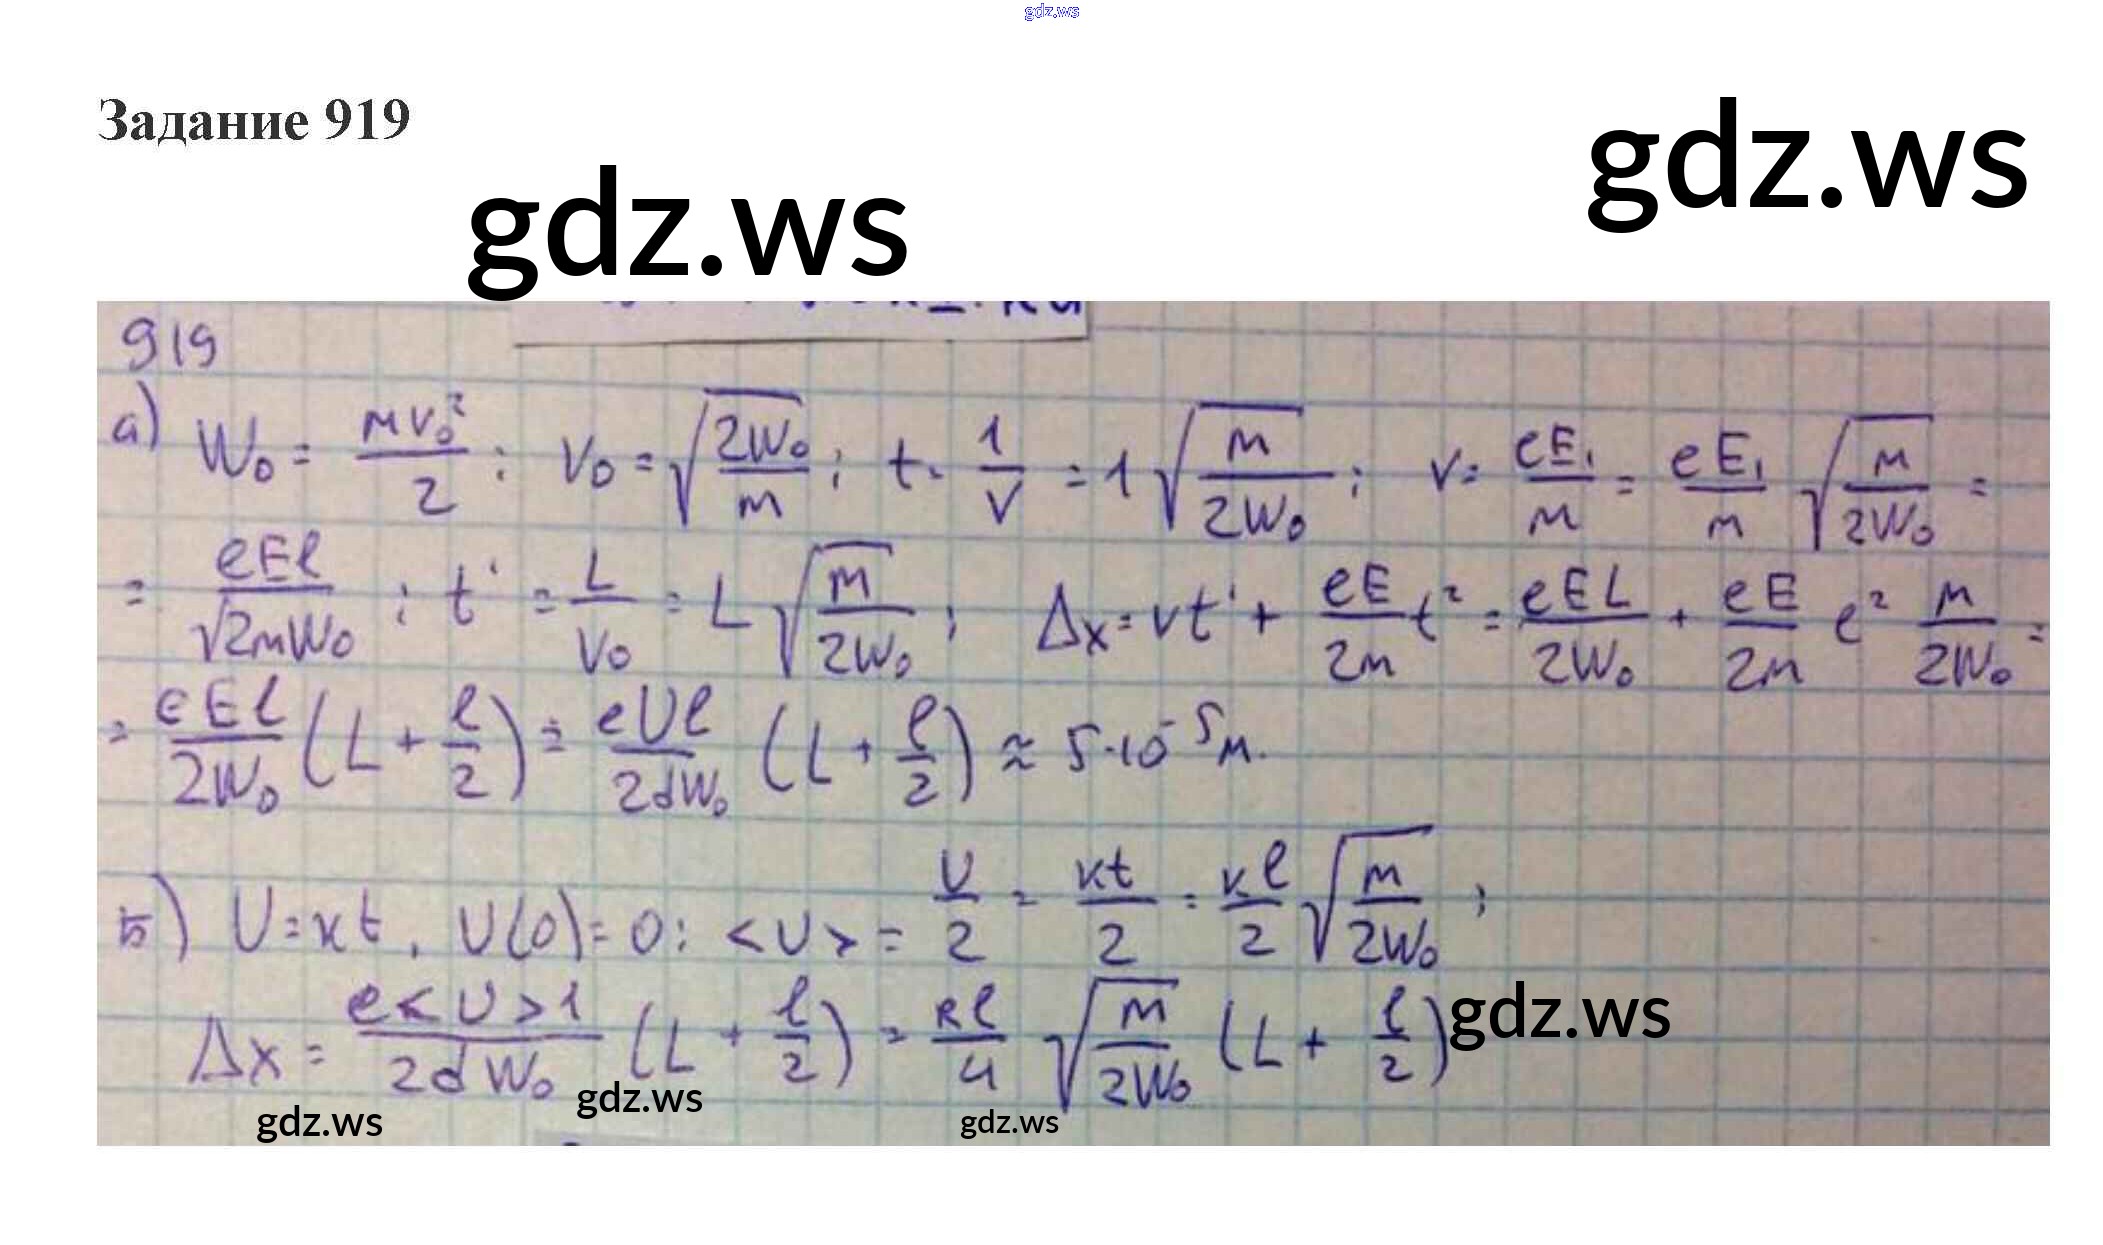 gdz.ws
Задание 919
gdz.ws
gdz.ws
919
а) W₀ = mv₀²/2 ; v₀ = √(2W₀/m) ; t = 1/v = 1√(m/2W₀) ; v = eE₁/m = eE₁/m √(m/2W₀) =
= eEl/√2mW₀ ; t' = L/v₀ = L√(m/2W₀) ; Δx = vt' + eE/2m t² = eEL/2W₀ + eE/2m e² m/2W₀ =
= eEl/2W₀ (L + l/2) = eUl/2dW₀ (L + l/2) ≈ 5·10⁻⁵ м.
б) U = kt, U(0) = 0 : <U> = U/2 = kt/2 = kl/2 √(m/2W₀) ;
Δx = e<U>1/2dW₀ (L + l/2) = kl/4 √(m/2W₀) (L + l/2)
gdz.ws
gdz.ws
gdz.ws
gdz.ws